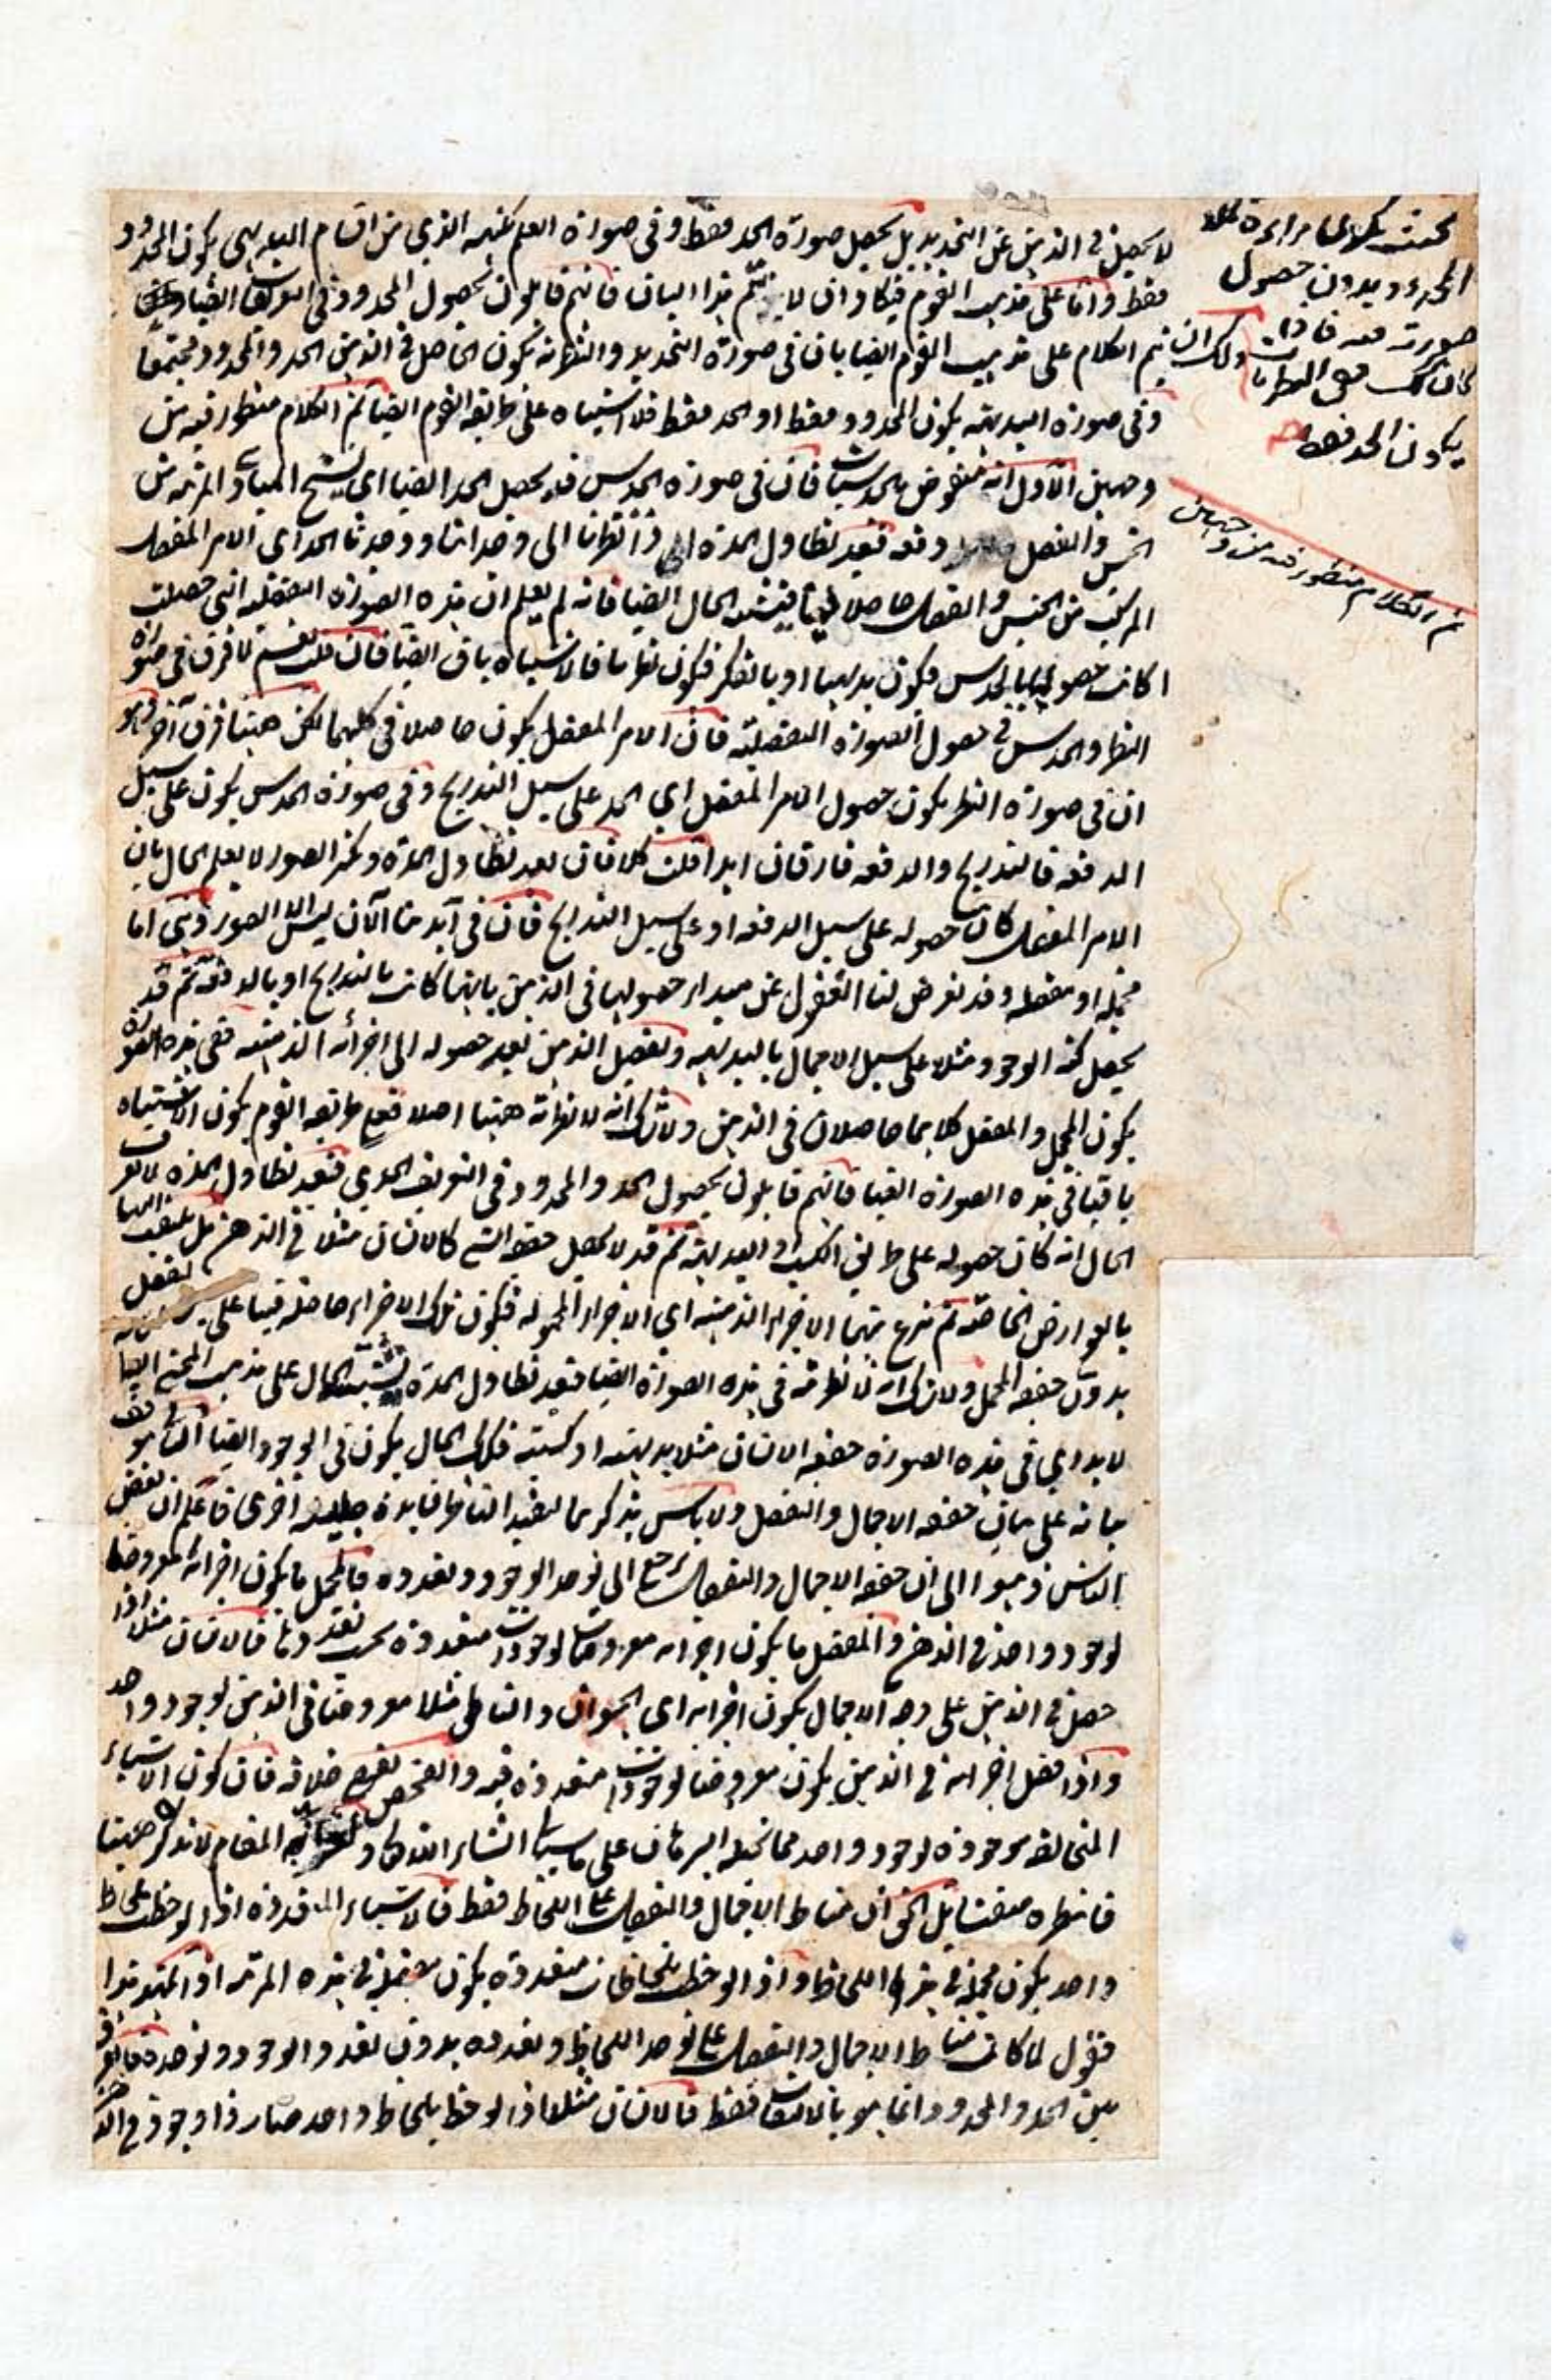 لا يحصل في الذهن عن التحديد بل يحصل صورة الحد فقط وفي صورة العلم بكنهه الذي من اقسام البديهي يكون المحدود
فقط واما على مذهب القوم فيكاد ان لا يتم هذا البيان فانهم قايلون بحصول المحدود في التعريفات ايضا
ولك ان تتم الكلام على مذهب القوم ايضا بان في صورة التحديد والنظرية يكون الحاصل في الذهن الحد والمحدود مجتمعا
وفي صورة البديهية يكون المحدود فقط او الحد فقط فلا اشتباه على طريقة القوم ايضا ثم الكلام منظور فيه من
وجهين الاول انه منقوض بالحدسيات فان في صورة الحدس قد يحصل الحد ايضا اي يسنح المبادي المرتبة من
الجنس والفصل دفعة فبعد تطاول المدة اذا نظرنا الى وجداننا ووجدنا الحد اي الامر المفصل
المركب من الجنس والفصل حاصلا فيشتبه الحال ايضا فانه لم يعلم ان هذه الصورة التفصيلية التي حصلت
اكانت حصولها بالحدس فيكون بديهيا او بالفكر فيكون نظريا فالاشتباه باق ايضا فان قلت نعم لا فرق في صورة
النظر والحدس في حصول الصورة التفصيلية فان الامر المفصل يكون حاصلا في كليهما لكن ههنا فرق آخر وهو
ان في صورة النظر يكون حصول الامر المفصل اي الحد على سبيل التدريج وفي صورة الحدس يكون على سبيل
الدفعة فالتدريج والدفعة فارقان ابدا قلت كلا فان بعد تطاول المدة وتكثر الصور لا يعلم الحال بان
الامر المفصل كان حصوله على سبيل الدفعة او على سبيل التدريج فان في آيدينا الآن ليس الا الصور وهي اما
مجملة او مفصلة وقد تعرض لنا الغفول عن مبدا حصولها في الذهن بانها كانت بالتدريج او بالدفعة ثم قد
يحصل كنه الوجود مثلا على سبيل الاجمال بالبديهة وتفصل الذهن بعد حصوله الى اجزائه الذهنية ففي هذه الصورة
يكون المجمل والمفصل كلاهما حاصلان في الذهن ولا شك انه لا نظرية ههنا اصلا فعلى طريقة القوم يكون الاشتباه
باقيا في هذه الصورة ايضا فانهم قايلون بحصول الحد والمحدود في التعريف الحدي فبعد تطاول المدة لا يعرف
الحال انه كان حصوله على طريق الكسب او البديهة ثم قد لا يحصل حقيقة الشي كالانسان مثلا في الذهن بل يلتفت اليها
بالعوارض الخاصة ثم ننزع منها الاجزاء الذهنية اي الاجزاء المحمولة فيكون تلك الاجزاء حاصلة فينا على
بدون حقيقة المجمل ولا شك انه لا نظرية في هذه الصورة ايضا فبعد تطاول المدة يشتبه الحال على مذهب المحقق ايضا
لا يدري في هذه الصورة حقيقة الانسان مثلا بديهية او كسبية فكذلك الحال يكون في الوجود ايضا الثاني موقوف
بيانه على بيان حقيقة الاجمال والتفصيل ولا باس بذكرهما ليفيد الناظر فايدة جليلة اخرى فاعلم ان بعض
الناس ذهبوا الى ان حقيقة الاجمال والتفصيل يرجع الى توحد الوجود وتعدده فالمجمل ما يكون اجزائه معروضا
لوجود واحد في الذهن والمفصل ما يكون اجزائه معروضات لوجودات متعددة بحسب تعددها فالانسان مثلا اذا
حصل في الذهن على وجه الاجمال يكون اجزائه اي الحيوان والناطق مثلا معروضا في الذهن لوجود واحد
واذا فصل اجزائه في الذهن يكون معروضا لوجودات متعددة فيه والفحص يقتضي خلافه فان كون الاشياء
المتخالفة موجودة لوجود واحد مما يحيله البرهان على ما سيأتي انشاء الله تعالى ولغرابة المقام لا نذكر ههنا
فانتظره مفتشا بل الحق ان مناط الاجمال والتفصيل على اللحاظ فقط فالاشياء المتعددة اذا لوحظت بلحاظ
واحد يكون مجملة في هذا اللحاظ واذا لوحظت بلحاظات متعددة يكون مفصلة في هذه المرتبة اذا تمهد هذا
فنقول لما كان مناط الاجمال والتفصيل على توحد اللحاظ وتعدده بدون تعدد الوجود وتوحده فالفرق
بين الحد والمحدود انما هو بالالتفات فقط فالانسان مثلا اذا لوحظ بلحاظ واحد صار ذا وجود في الذهن
المحدود بدون حصول
صورته معه فاذا
كان كذلك ففي النظريات
يكون الحد فقط
ثم الكلام منظور فيه من وجهين